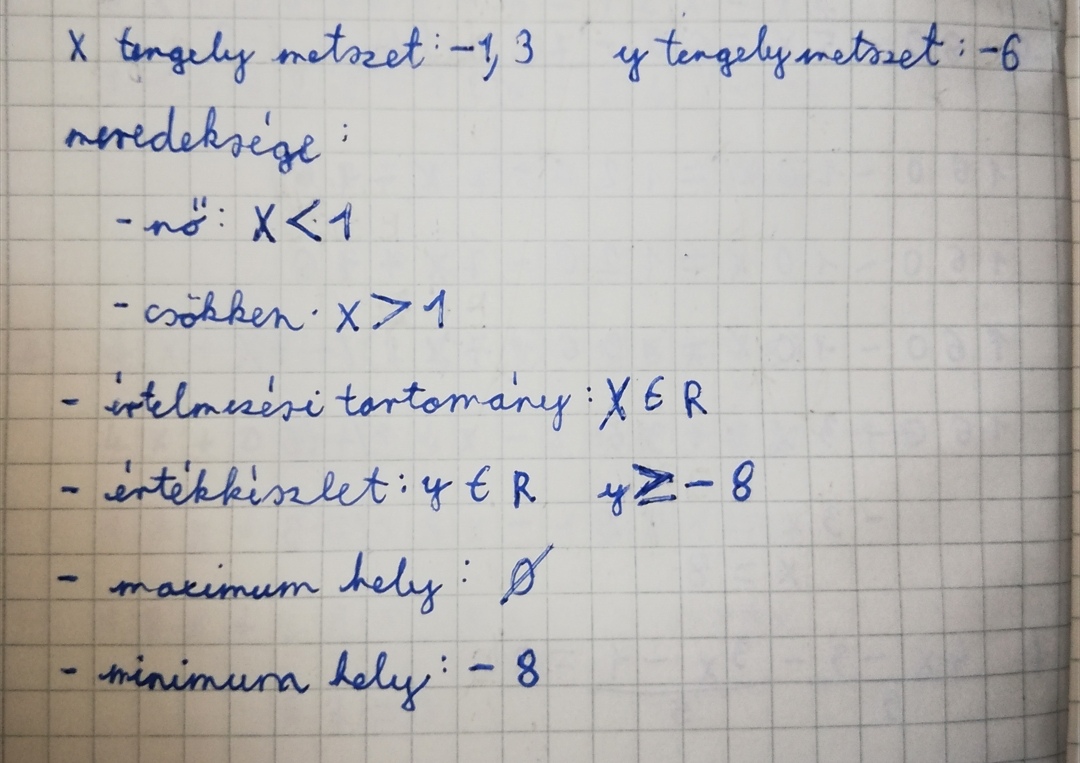 x tengely metszet: -1, 3 y tengelymetszet: -6
meredeksége:
- nő: x < 1
- csökken. x > 1
- értelmezési tartomány: x ∈ R
- értékkészlet: y ∈ R y ≥ - 8
- maximum hely: ∅
- minimum hely: - 8